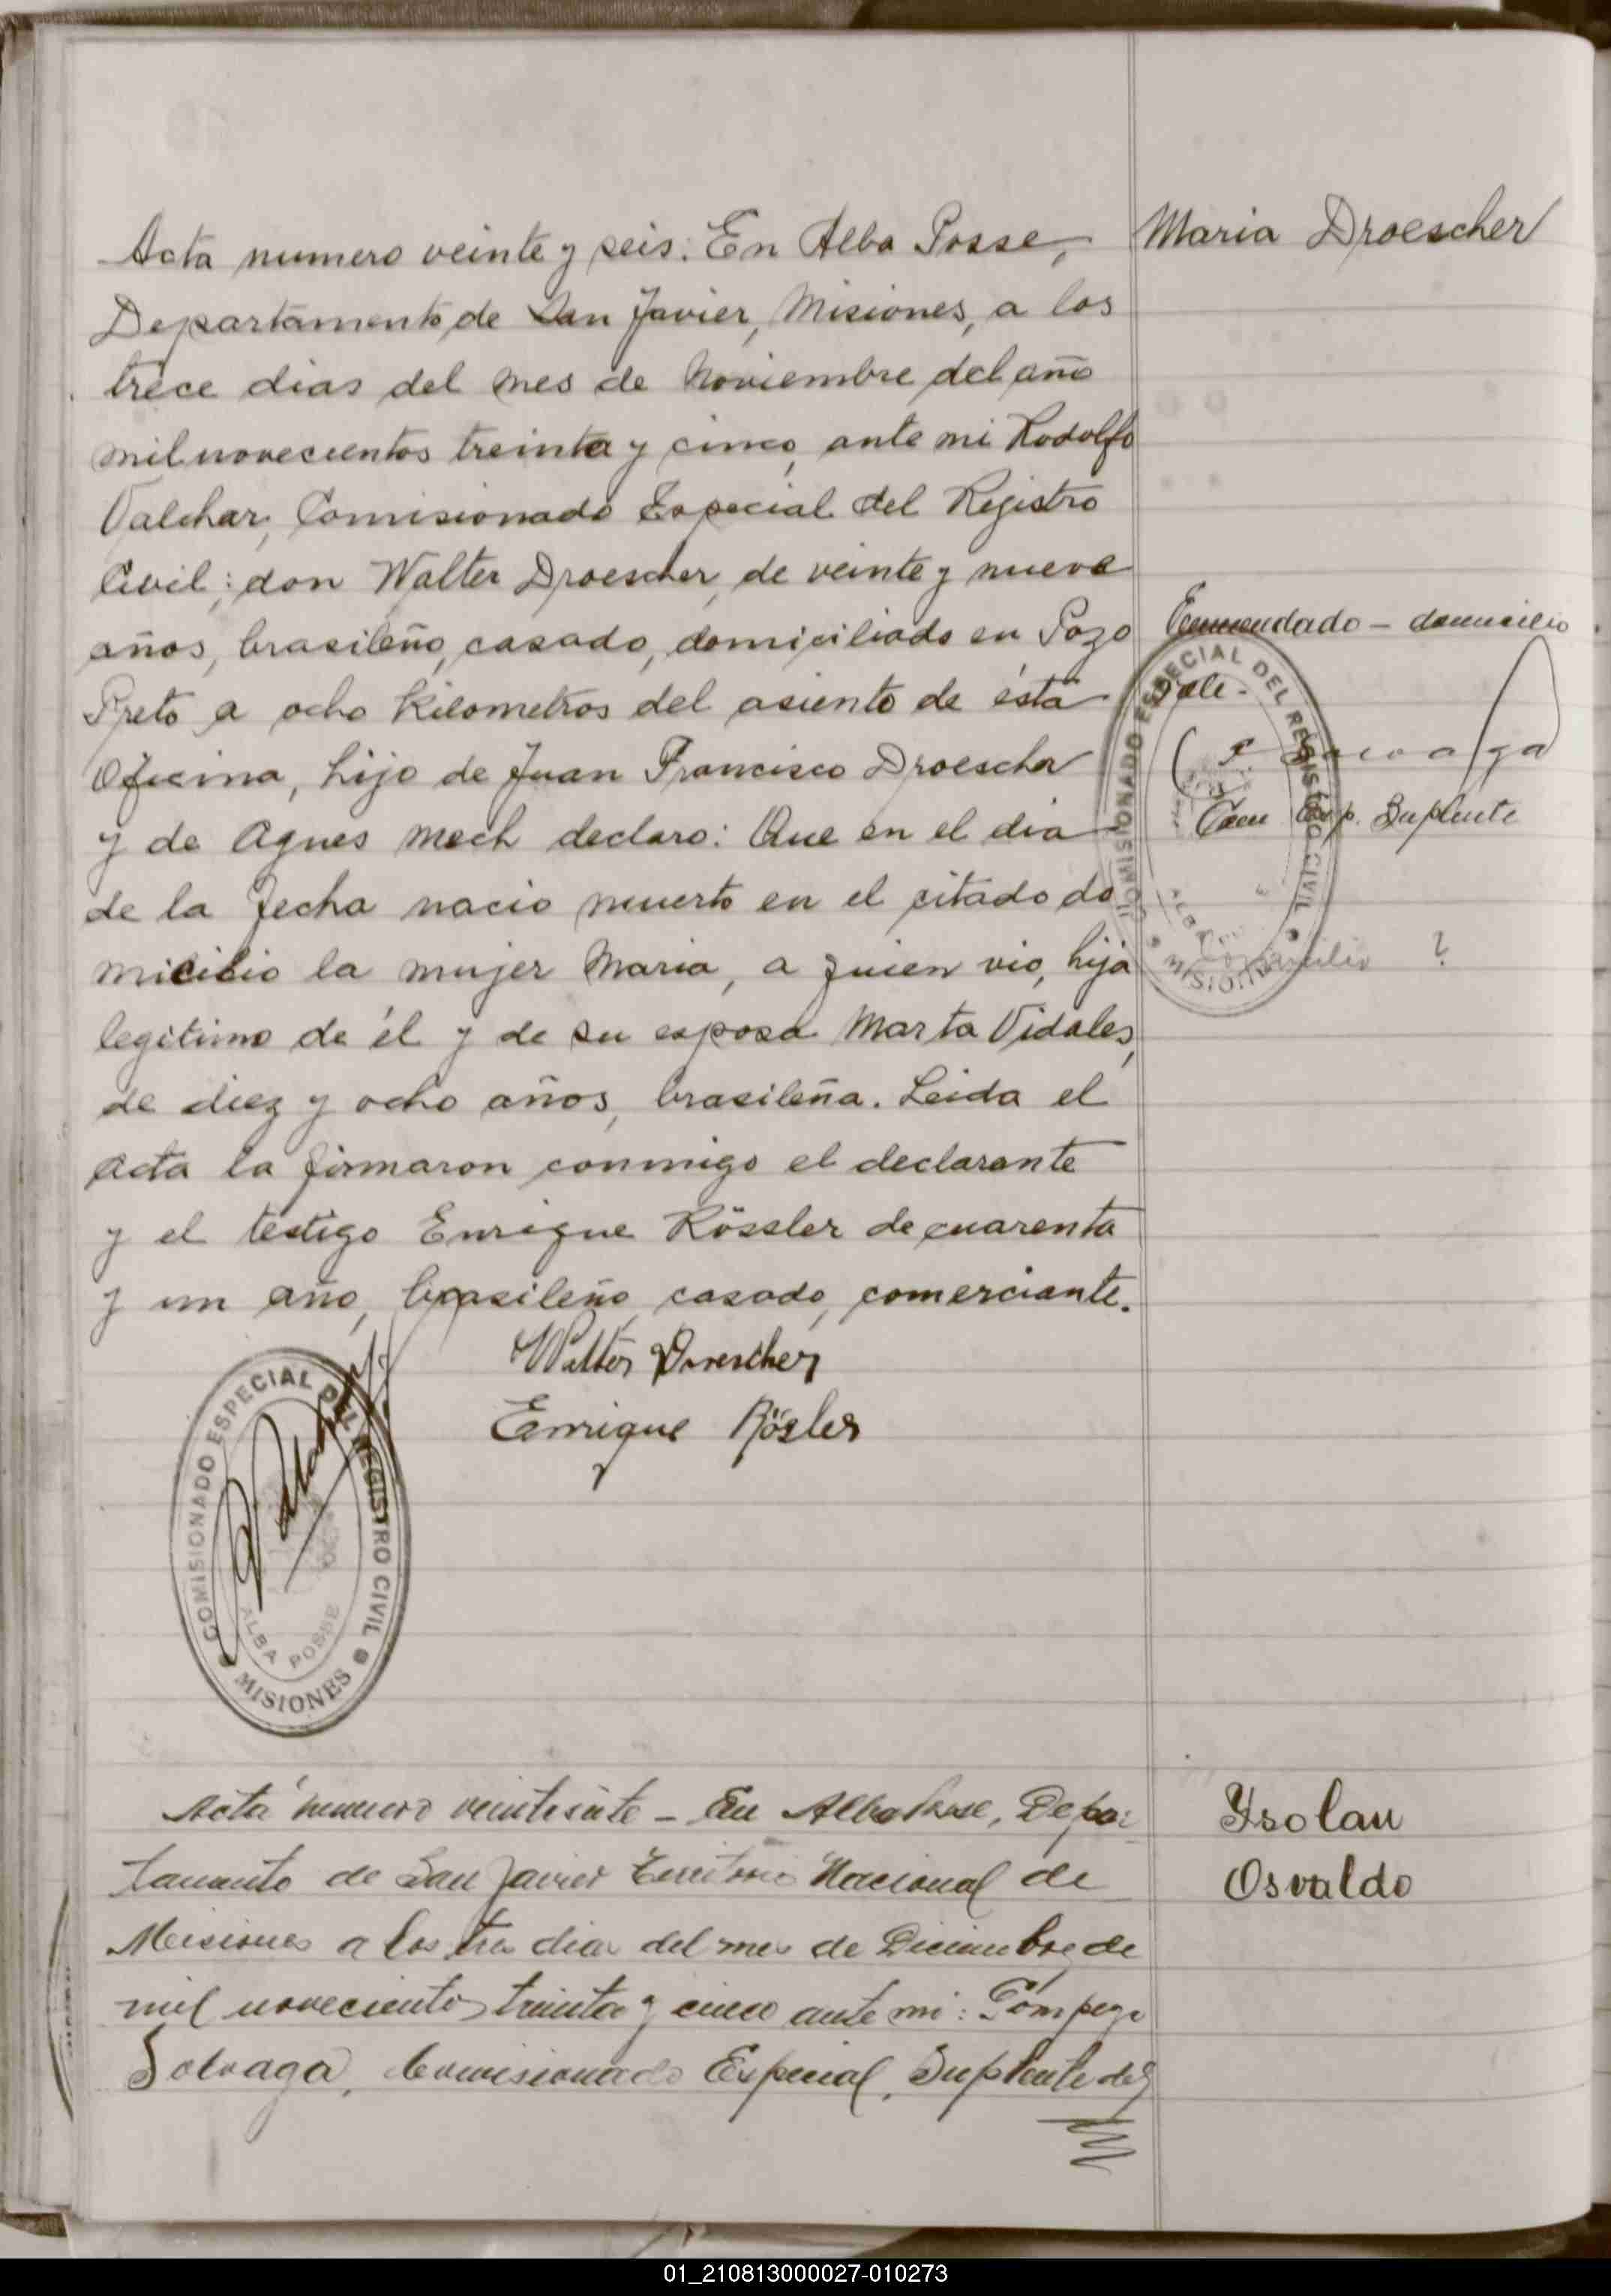 Acta numero veinte y seis: En Alba Posse,
Maria Droescher
Departamento de San Javier, Misiones, a los
trece dias del mes de Noviembre del año
mil novecientos treinta y cinco, ante mi Rodolfo
Valchar, Comisionado Especial del Registro
Civil; don Walter Droescher, de veinte y nueve
años, brasileño, casado, domiciliado en Pozo
Preto a ocho kilometros del asiento de ésta
Oficina, hijo de Juan Francisco Droescher
y de Agnes Mech declaro: Que en el dia
de la fecha nacio muerto en el citado do
micilio la mujer Maria, a quien vio, hija
legitimo de él y de su esposa Marta Vidales,
de diez y ocho años, brasileña. Leida el
acta la firmaron conmigo el declarante
y el testigo Enrique Rössler de cuarenta
y un año, brasileño, casado, comerciante.
Enmendado - domicilio
Vale -
Com Esp. Suplente
COMISIONADO ESPECIAL DEL REGISTRO CIVIL
ALBA
MISIONES
domicilio ?
Walter Droescher
Enrique Rösler
COMISIONADO ESPECIAL DEL REGISTRO CIVIL
ALBA POSSE
MISIONES
Acta numero veintisiete - En Alba Posse, Depar
tamento de San Javier Territorio Nacional de
Misiones a los tres dias del mes de Diciembre de
mil novecientos treinta y cinco ante mi: Pómpeyo
Solvaga, Comisionado Especial, Suplente del
Ysolan
Osvaldo
01_210813000027-010273